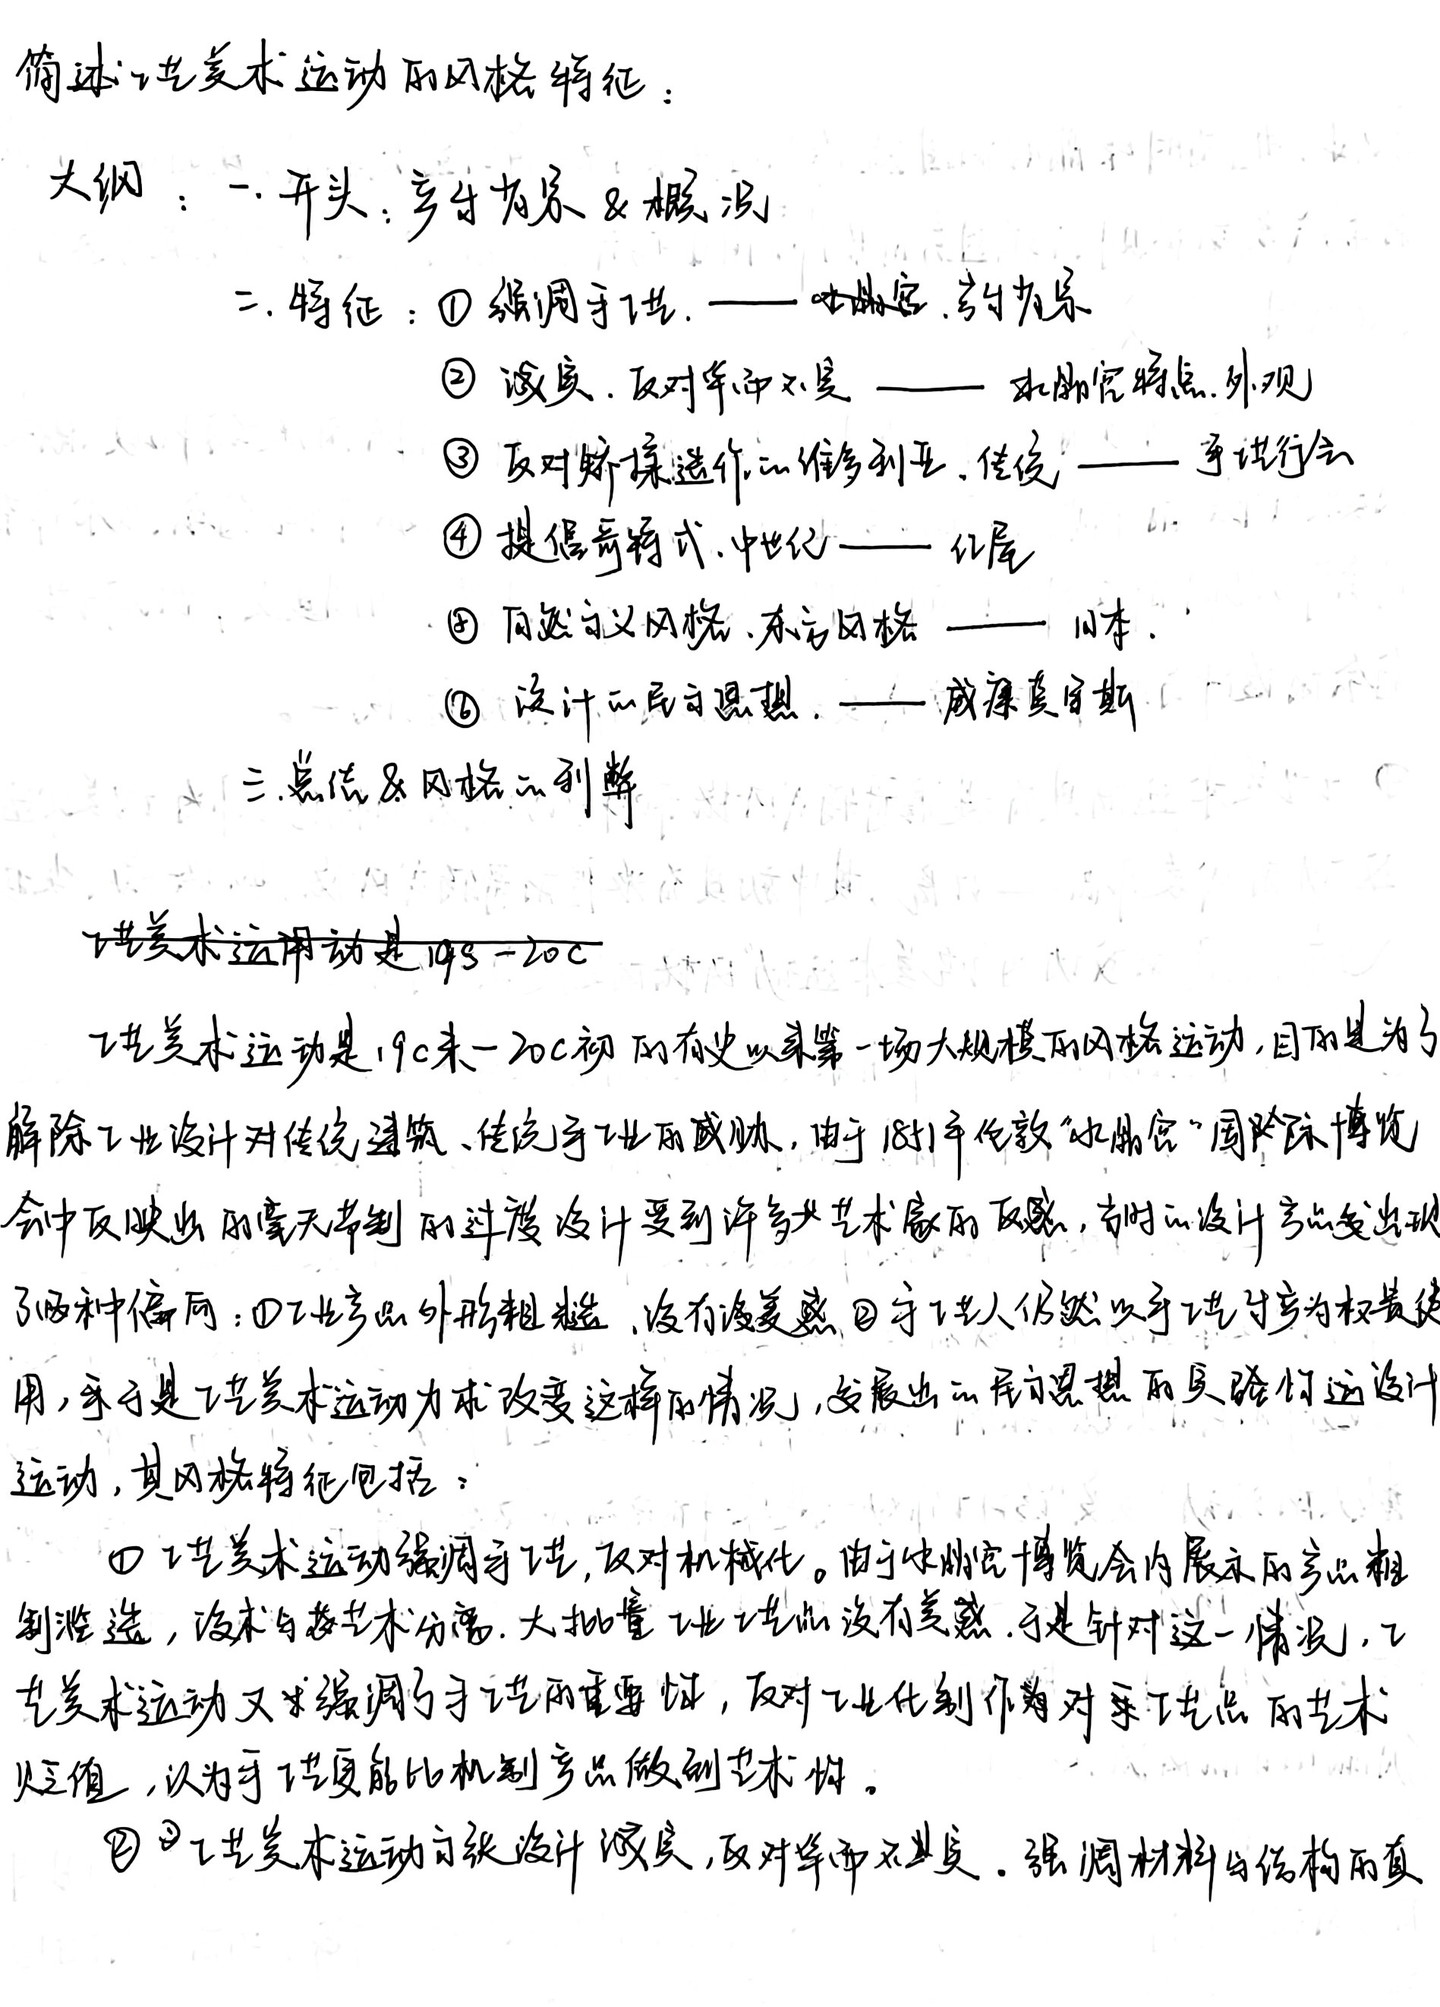 简述工艺美术运动的风格特征：
大纲：一.开头：产生背景 & 概况
二.特征：① 强调手工艺. —— 水晶宫.产生背景
② 诚实.反对华而不实 —— 水晶宫特点.外观
③ 反对矫揉造作的维多利亚.传统 —— 手工艺行会
④ 提倡哥特式.中世纪 —— 红屋
⑤ 自然主义风格.东方风格 —— 日本.
⑥ 设计的民主思想. —— 威廉莫里斯
三.总结 & 风格的利弊
工艺美术运用动是19S-20C
工艺美术运动是19C末-20C初的有史以来第一场大规模的风格运动,目的是为了
解除工业设计对传统建筑、传统手工业的威胁,由于1851年伦敦“水晶宫”国际博览
会中反映出的毫无节制的过度设计受到许多艺术家的反感,当时的设计产品发出现
了两种倾向：①工业产品外形粗糙、没有美感②手工艺人仍然以手工艺生产为权贵使
用,于是工艺美术运动力求改变这样的情况,发展出的民主思想的实验性运设计
运动,其风格特征包括：
① 工艺美术运动强调手工艺,反对机械化。由于水晶宫博览会内展示的产品粗
制滥造,技术与艺术分离.大批量工业工艺品没有美感.于是针对这一情况,工
艺美术运动又强调了手工艺的重要性,反对工业化制作对手工艺品的艺术
贬值,认为手工艺更能比机制产品做到艺术性。
② 工艺美术运动主张设计诚实,反对华而不实。强调材料与结构的真